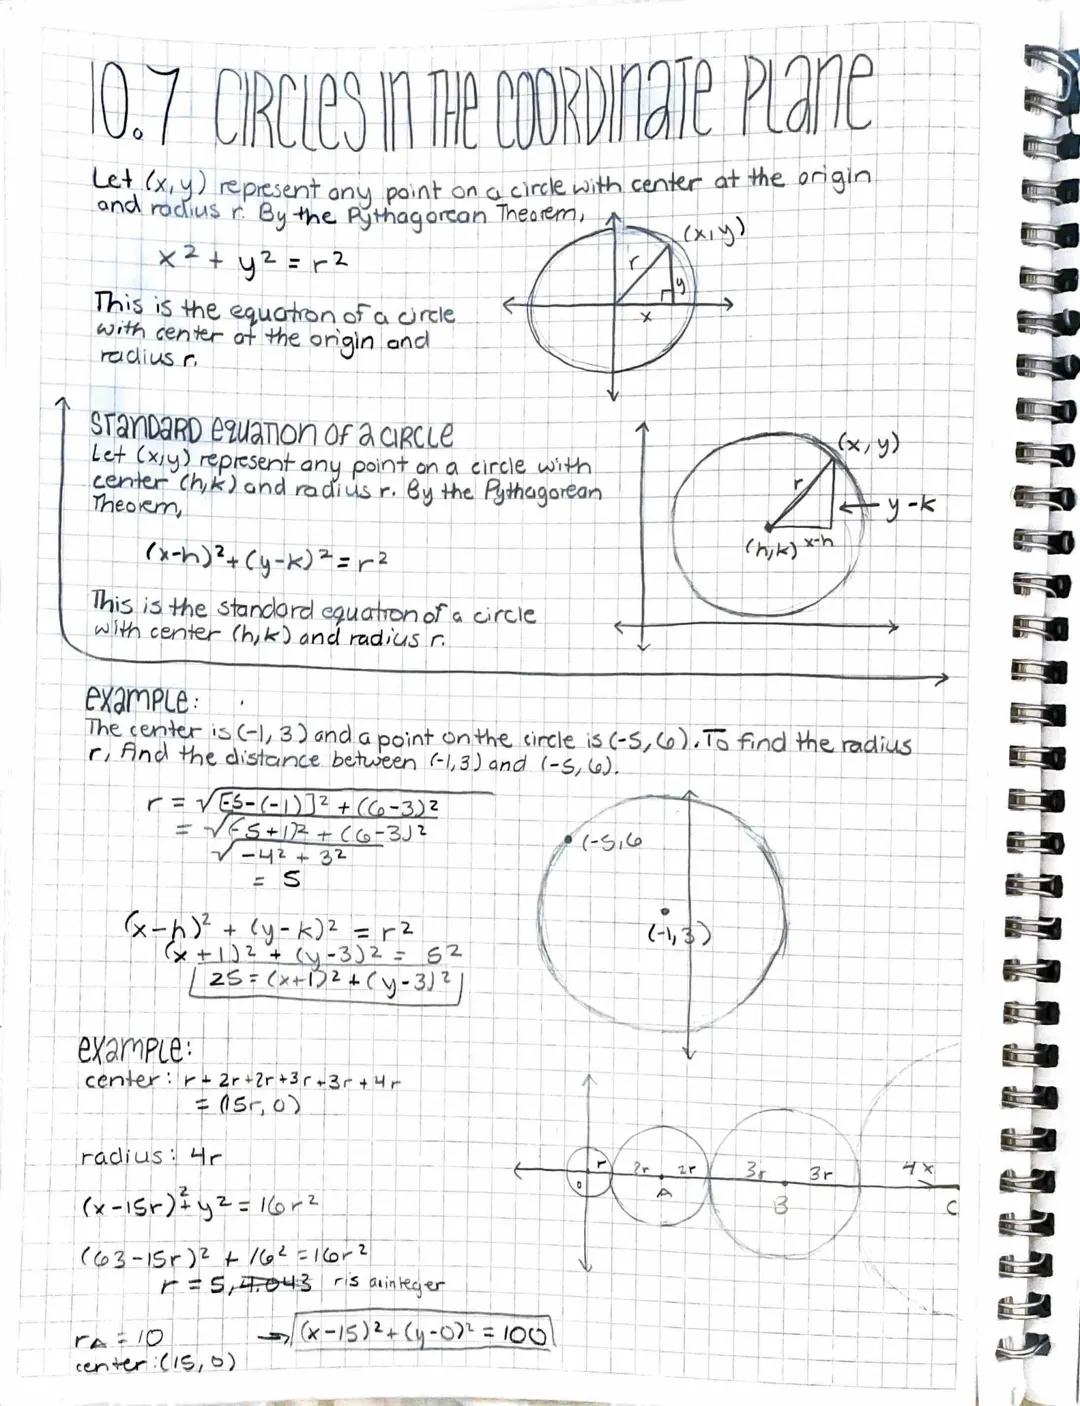 10.7 CIRCLES IN THE COORDINATE PLANE
Let (x,y) represent any point on a circle with center at the origin
and radius r. By the Pythagorean Theorem,
x² + y² = r²
This is the equation of a circle
with center at the origin and
radius r.
(x,y)
r
y
x
STANDARD EQUATION OF A CIRCLE
Let (x,y) represent any point on a circle with
center (h,k) and radius r. By the Pythagorean
Theorem,
(x-h)² + (y-k)² = r²
This is the standard equation of a circle
with center (h,k) and radius r.
(x,y)
r
y-k
(h,k) x-h
example:
The center is (-1,3) and a point on the circle is (-5,6). To find the radius
r, find the distance between (-1,3) and (-5,6).
r = √[-5-(-1)]² + (6-3)²
= √(-5+1)² + (6-3)²
√-4² + 3²
= 5
(x-h)² + (y-k)² = r²
(x+1)² + (y-3)² = 5²
25 = (x+1)² + (y-3)²
(-5,6
(-1,3)
example:
center: r + 2r + 2r + 3r + 3r + 4r
= (15r, 0)
radius: 4r
(x-15r)² + y² = 16r²
(63-15r)² + 16² = 16r²
r = 5, 4.043 r is an integer
rA = 10
center: (15,0)
→ (x-15)² + (y-0)² = 100
r 2r 2r 3r 3r 4x
0 A B C